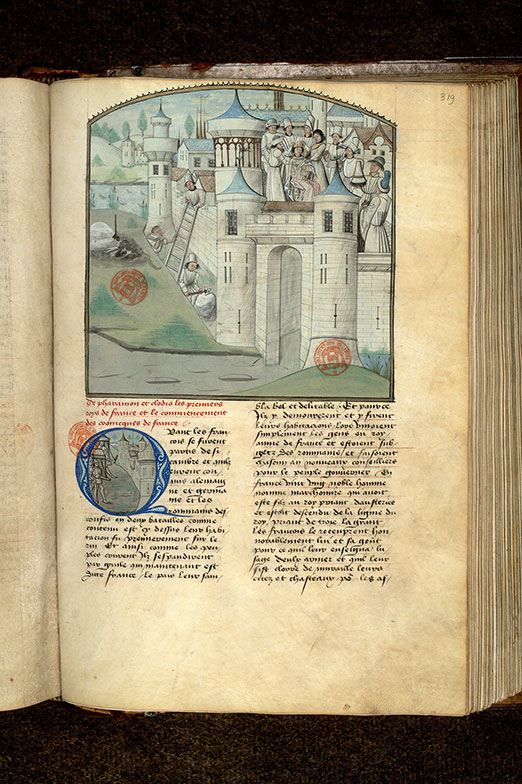 319
De pharamon et clodio les premiers
roys de france et le commencement
des croniques de france
Quant les fran
cois se furent
partis de si
cambre et quilz
eurent con
quis alemaig
ne et germa
nie et les
Rommains des
confis en deux batailles comme
contenu est cy dessus leur habi
tacion fu premierement sur le
rin Et ainsi comme les peu
ples crurent ilz sespandirent
par gaule qui maintenant est
ditte france le pais leur sam
bla bel et delitable Et pour ce
Ilz y demourerent et y firent
leurs habitacions Lors vivoient
simplement les gens ou roy
aume de france et estoient sub
gectz des rommains et faisoient
chascun an nouveaux conseilliers
pour le peuple gouverner En
france vint ung noble homme
nomme marchomire qui avoit
este filz au roy priant daustrice
et estoit descendu de la ligne du
roy priant de troie la grant
Les francois le receuprent hon
norablement lui et sa gent
pour ce quil leur enseigna lu
sage deulx armer et quil leur
fist clorre de muraille leurs
citez et chasteaux pour les as